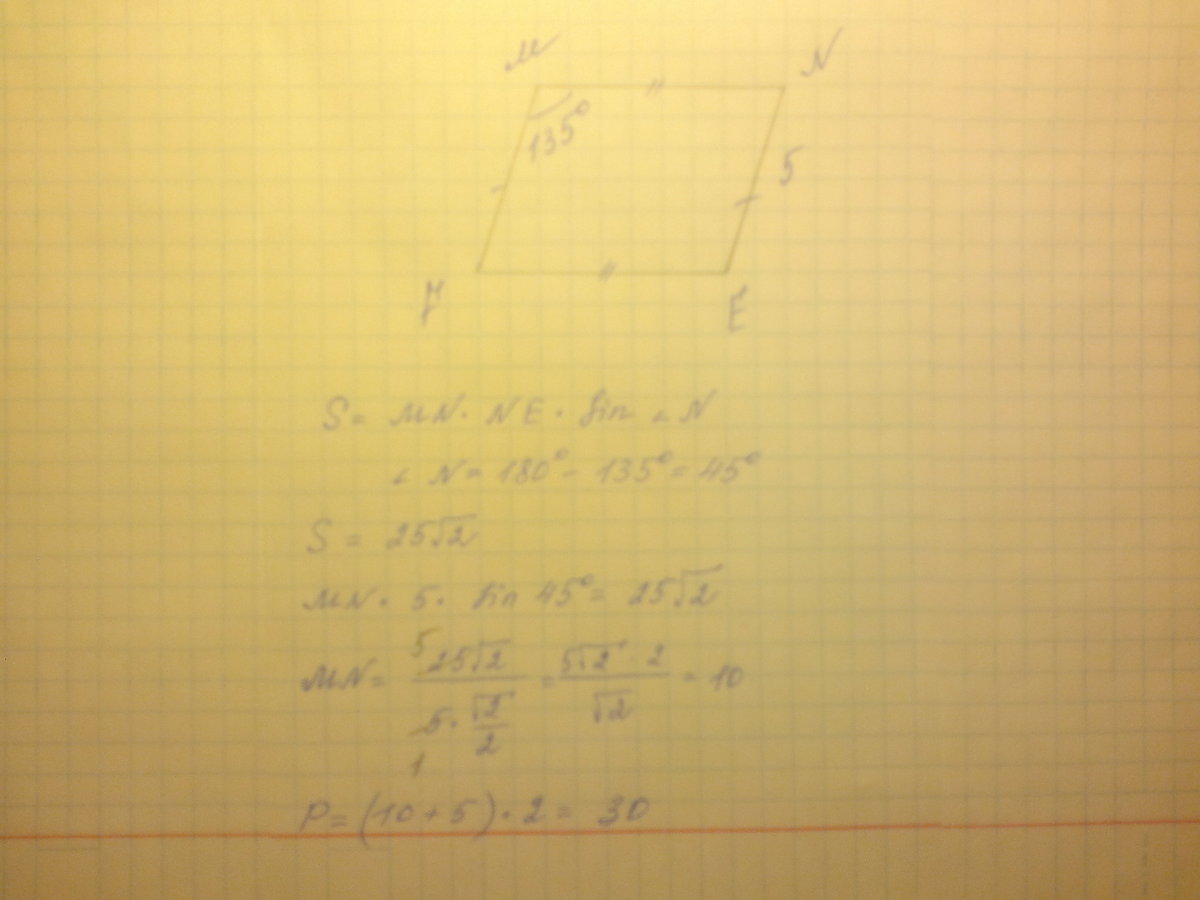 M N
135°
5
F E
S = MN · NE · sin ∠N
∠N = 180° - 135° = 45°
S = 25√2
MN · 5 · sin 45° = 25√2
MN = 5 25√2 / 5 · √2/2 1 = 5√2 · 2 / √2 = 10
P = (10 + 5) · 2 = 30